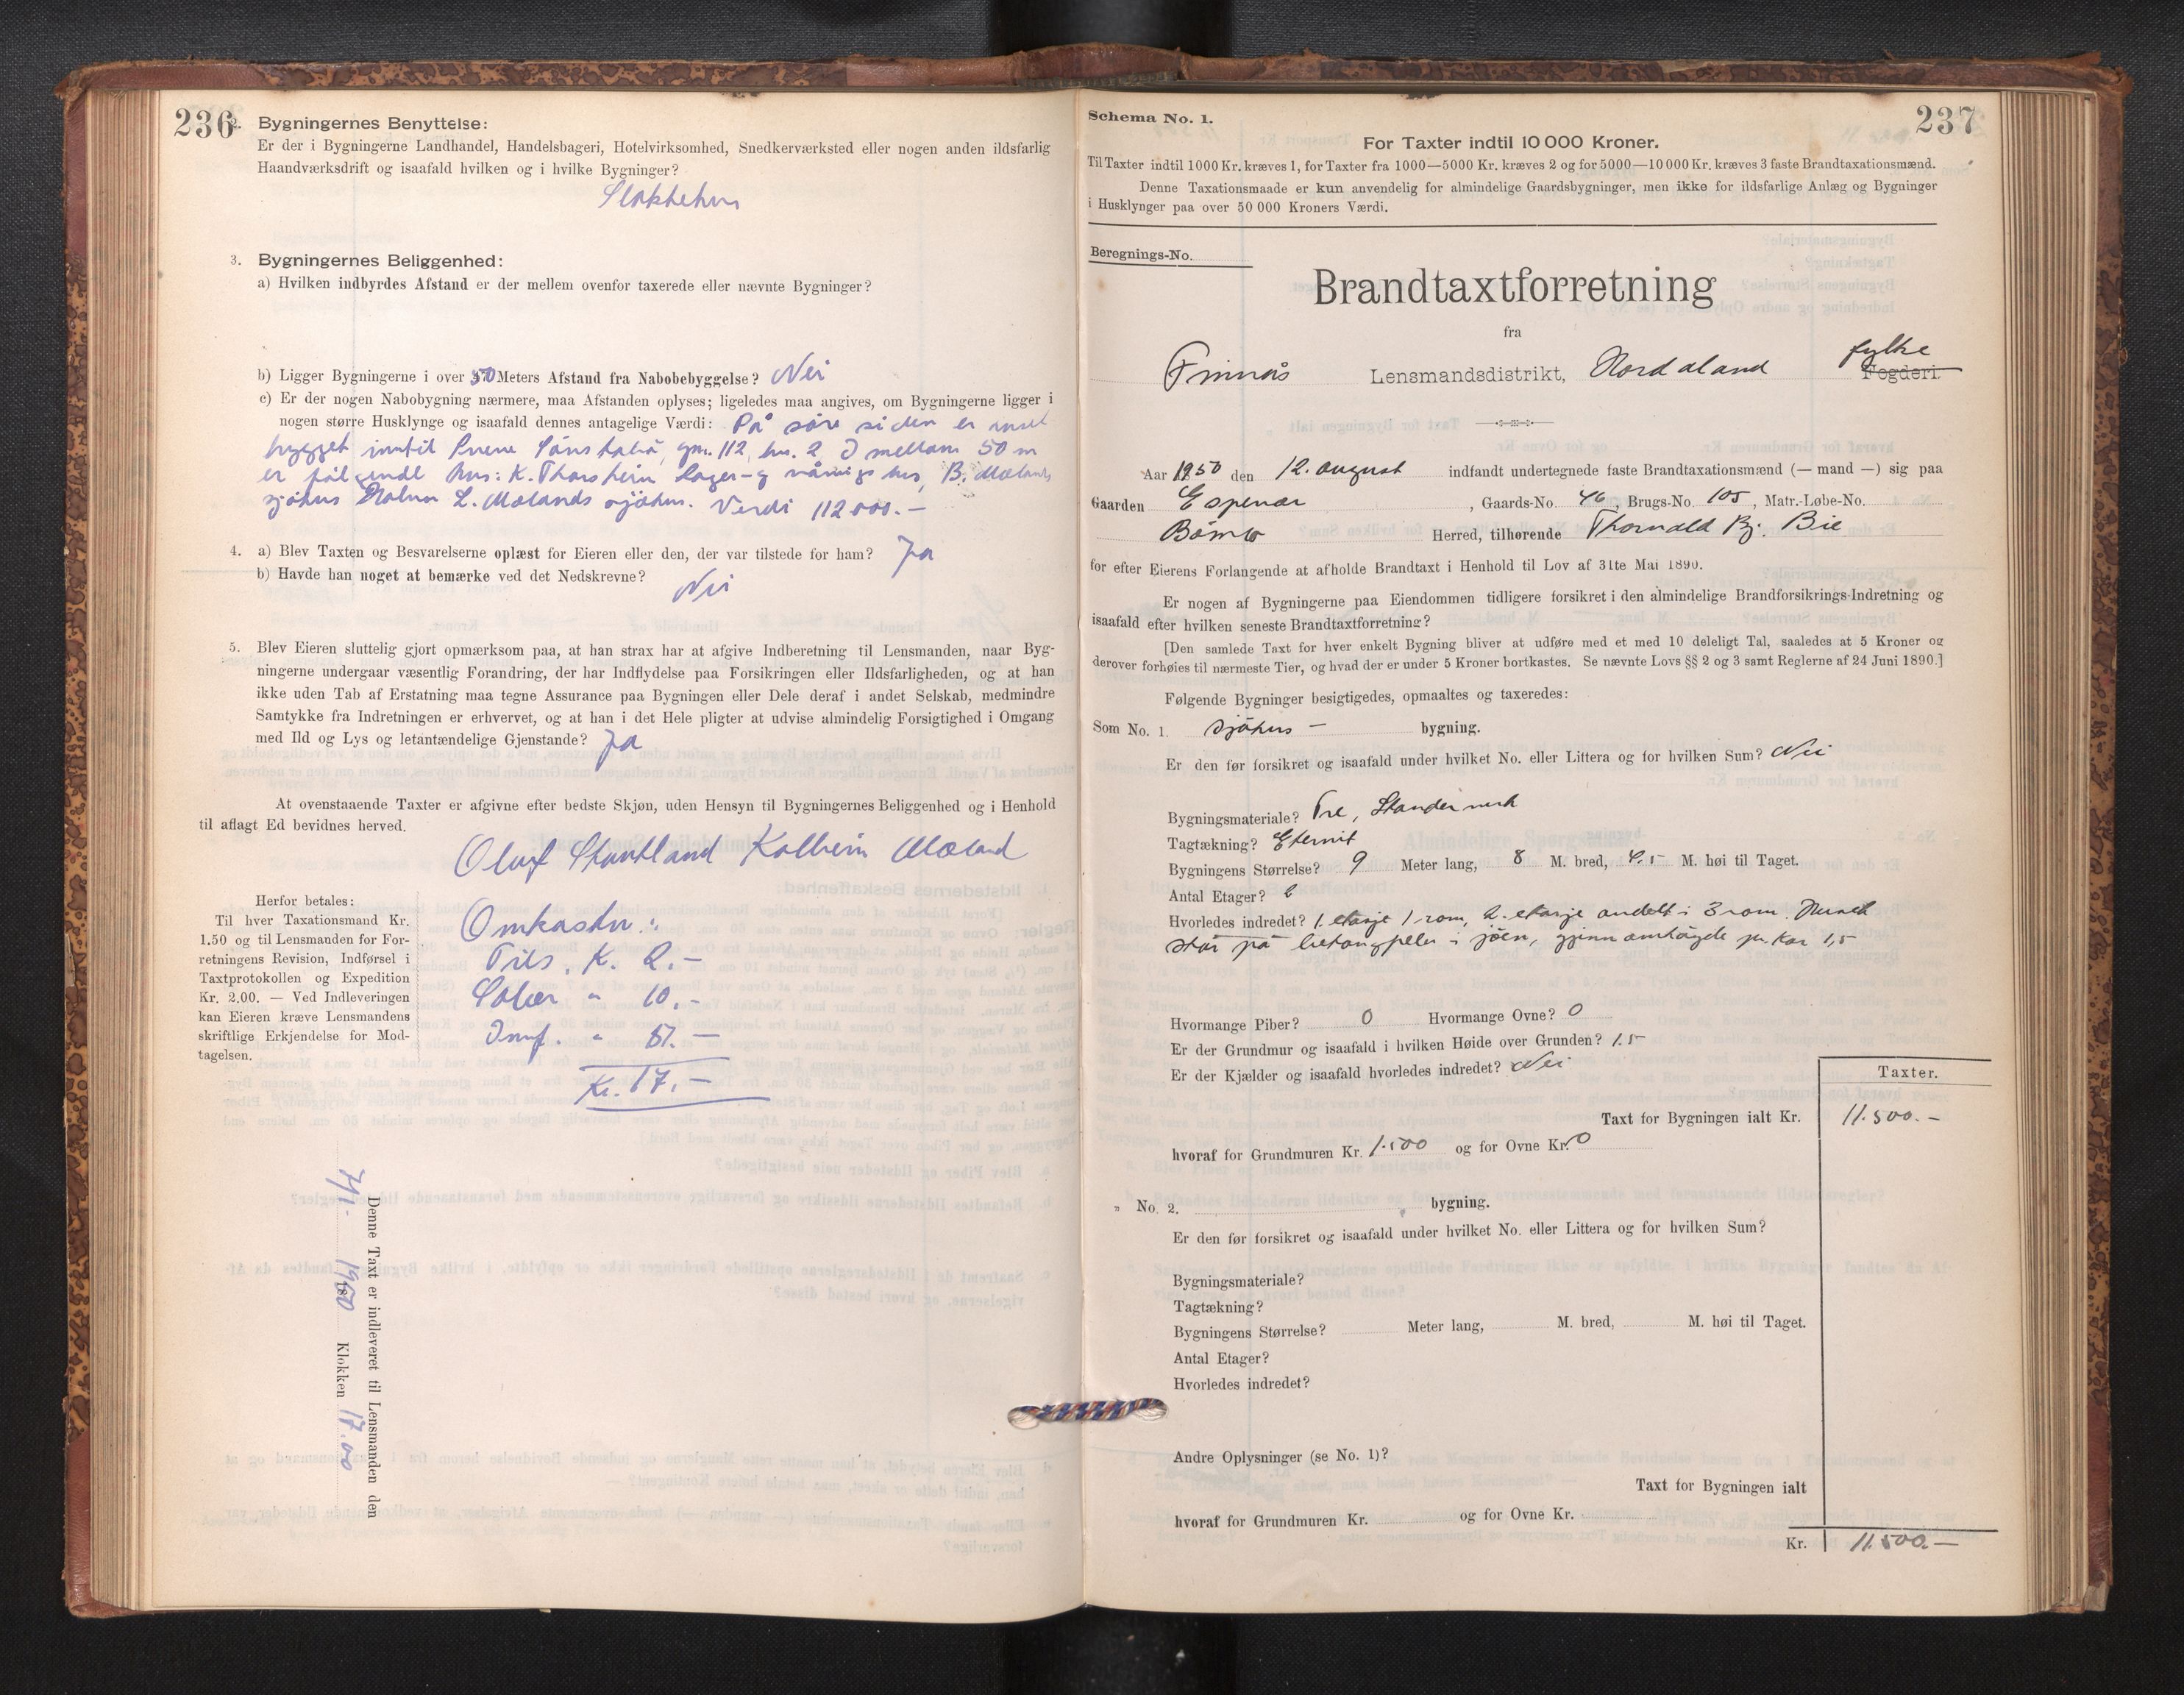 236
2. Bygningernes Benyttelse:
Er der i Bygningerne Landhandel, Handelsbageri, Hotelvirksomhed, Snedkerværksted eller nogen anden ildsfarlig
Haandværksdrift og isaafald hvilken og i hvilke Bygninger?
Slaktehus
3. Bygningernes Beliggenhed:
a) Hvilken indbyrdes Afstand er der mellem ovenfor taxerede eller nævnte Bygninger?
b) Ligger Bygningerne i over 50 Meters Afstand fra Nabobebyggelse? Nei
c) Er der nogen Nabobygning nærmere, maa Afstanden oplyses; ligeledes maa angives, om Bygningerne ligger i
nogen større Husklynge og isaafald dennes antagelige Værdi: På søre siden er
bygget inntil gnr. 112, bnr. 2 I mellom 50 m
er følgende hus: K. Thorsheim Lager-og våningshus, B. Mælands
sjøhus L. Mælands sjøhus. Verdi 112 000.-
4. a) Blev Taxten og Besvarelserne oplæst for Eieren eller den, der var tilstede for ham? Ja
b) Havde han noget at bemærke ved det Nedskrevne?
Nei
5. Blev Eieren sluttelig gjort opmærksom paa, at han strax har at afgive Indberetning til Lensmanden, naar Byg-
ningerne undergaar væsentlig Forandring, der har Indflydelse paa Forsikringen eller Ildsfarligheden, og at han
ikke uden Tab af Erstatning maa tegne Assurance paa Bygningen eller Dele deraf i andet Selskab, medmindre
Samtykke fra Indretningen er erhvervet, og at han i det Hele pligter at udvise almindelig Forsigtighed i Omgang
med Ild og Lys og letantændelige Gjenstande? Ja
At ovenstaaende Taxter er afgivne efter bedste Skjøn, uden Hensyn til Bygningernes Beliggenhed og i Henhold
til aflagt Ed bevidnes herved.
Oluf Kolbein Mæland
Herfor betales:
Til hver Taxationsmand Kr.
1.50 og til Lensmanden for For-
retningens Revision, Indførsel i
Taxtprotokollen og Expedition
Kr. 2.00. — Ved Indleveringen
kan Eieren kræve Lensmandens
skriftlige Erkjendelse for Mod-
tagelsen.
Omkostn.:
K. 2.-
Salær " 10.-
" 5.-
Kr. 17.-
Denne Taxt er indleveret til Lensmanden den
1950 Klokken 17.00
237
Schema No. 1.
For Taxter indtil 10 000 Kroner.
Til Taxter indtil 1000 Kr. kræves 1, for Taxter fra 1000—5000 Kr. kræves 2 og for 5000—10 000 Kr. kræves 3 faste Brandtaxationsmænd.
Denne Taxationsmaade er kun anvendelig for almindelige Gaardsbygninger, men ikke for ildsfarlige Anlæg og Bygninger
i Husklynger paa over 50 000 Kroners Værdi.
Beregnings-No.
Brandtaxtforretning
fra
Finnås Lensmandsdistrikt, Hordaland fylke Fogderi.
Aar 1950 den 12. august indfandt undertegnede faste Brandtaxationsmænd (— mand —) sig paa
Gaarden Espevær, Gaards-No. 46, Brugs-No. 105, Matr.-Løbe-No.
Bømlo Herred, tilhørende Thorvald Bj. Bie
for efter Eierens Forlangende at afholde Brandtaxt i Henhold til Lov af 31te Mai 1890.
Er nogen af Bygningerne paa Eiendommen tidligere forsikret i den almindelige Brandforsikrings-Indretning og
isaafald efter hvilken seneste Brandtaxtforretning?
[Den samlede Taxt for hver enkelt Bygning bliver at udføre med et med 10 deleligt Tal, saaledes at 5 Kroner og
derover forhøies til nærmeste Tier, og hvad der er under 5 Kroner bortkastes. Se nævnte Lovs §§ 2 og 3 samt Reglerne af 24 Juni 1890.]
Følgende Bygninger besigtigedes, opmaaltes og taxeredes:
Som No. 1. sjøhus — bygning.
Er den før forsikret og isaafald under hvilket No. eller Littera og for hvilken Sum? Nei
Bygningsmateriale? Tre, Standerverk
Tagtækning? Eternit
Bygningens Størrelse? 9 Meter lang, 8 M. bred, 4.5 M. høi til Taget.
Antal Etager? 2
Hvorledes indredet? 1. etasje 1 rom, 2. etasje avdelt i 3 rom. Huset
står på i sjøen, 1,5
Hvormange Piber? 0 Hvormange Ovne? 0
Er der Grundmur og isaafald i hvilken Høide over Grunden? 1.5
Er der Kjælder og isaafald hvorledes indredet? Nei
Taxter.
Taxt for Bygningen ialt Kr. 11.500.-
hvoraf for Grundmuren Kr. 1.500 og for Ovne Kr. 0
" No. 2. bygning.
Er den før forsikret og isaafald under hvilket No. eller Littera og for hvilken Sum?
Bygningsmateriale?
Tagtækning?
Bygningens Størrelse? Meter lang, M. bred, M. høi til Taget.
Antal Etager?
Hvorledes indredet?
Andre Oplysninger (se No. 1)?
Taxt for Bygningen ialt
hvoraf for Grundmuren Kr. og for Ovne Kr.
Kr. 11.500.-